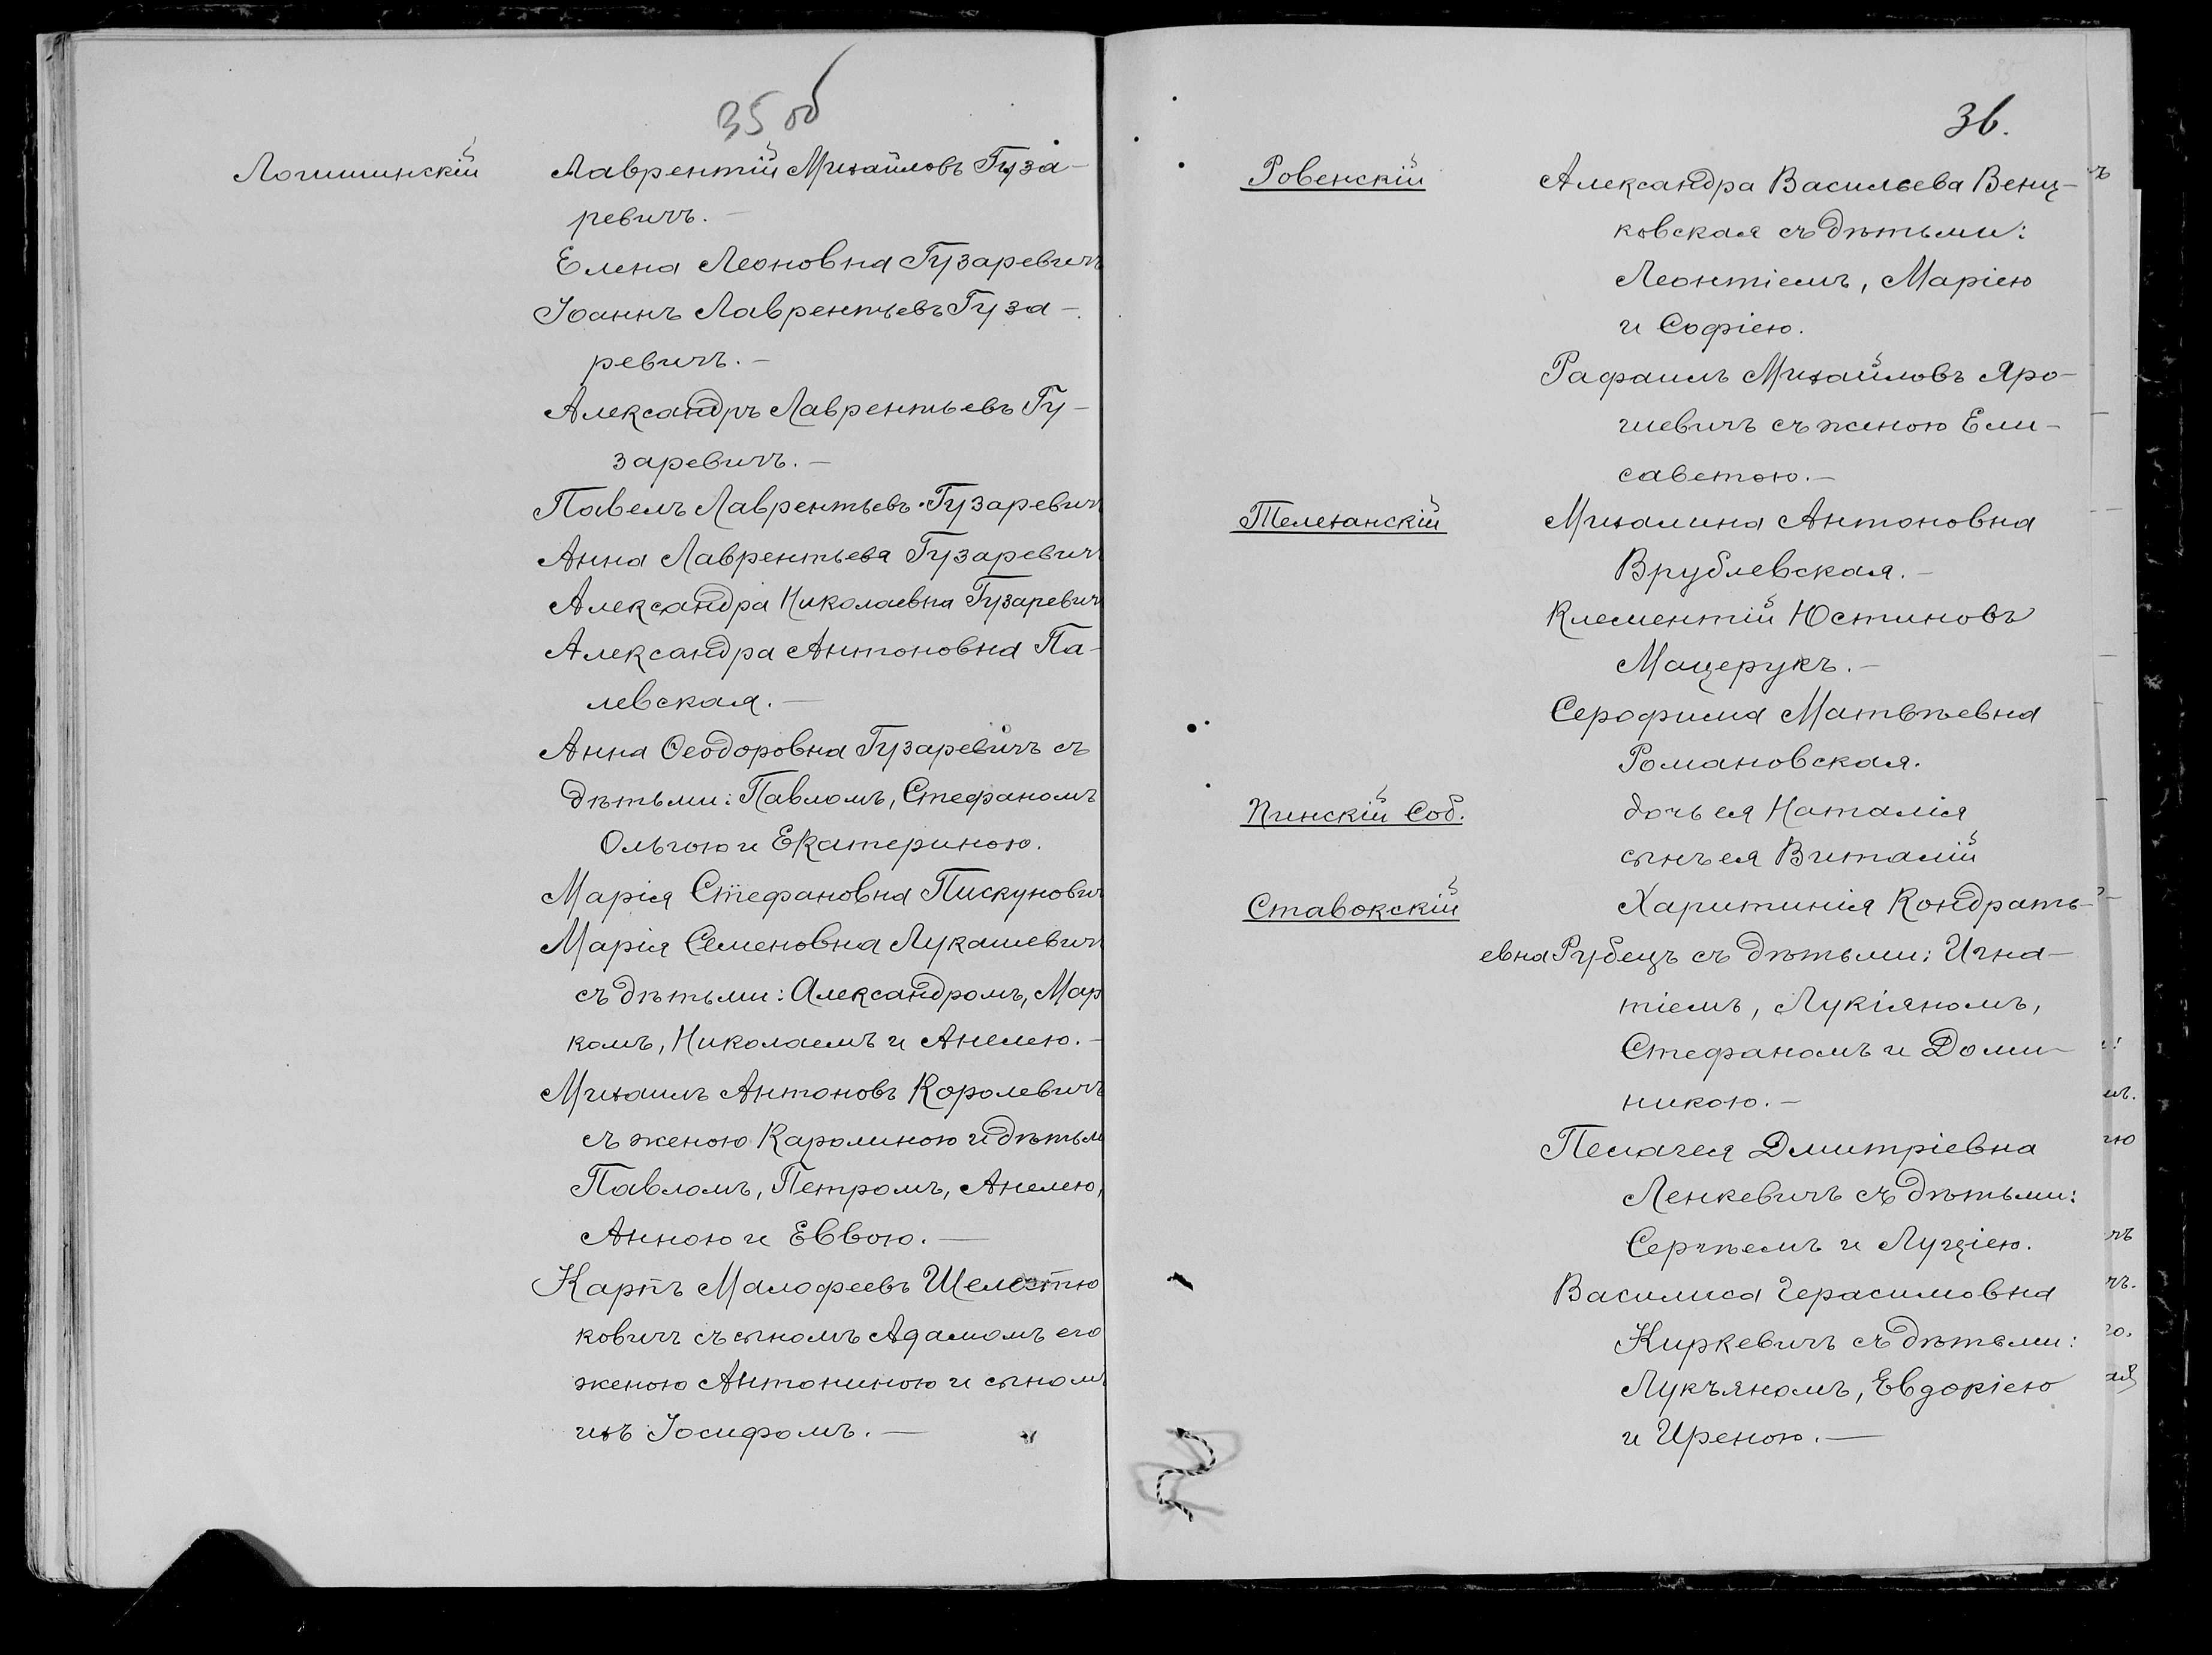 35 об
Логишинскій Лаврентій Михайловъ Гуза-
ревичъ. —
Елена Леоновна Гузаревичъ
Іоаннъ Лаврентьевъ Гуза-
ревичъ. —
Александръ Лаврентьевъ Гу-
заревичъ. —
Павелъ Лаврентьевъ Гузаревич
Анна Лаврентьева Гузаревич
Александра Николаевна Гузаревич
Александра Антоновна Па-
левская. —
Анна Ѳеодоровна Гузаревичъ съ
дѣтьми: Павломъ, Стефаномъ
Ольгою и Екатериною.
Марія Стефановна Пискунович
Марія Семеновна Лукашевич
съ дѣтьми: Александромъ, Мар
комъ, Николаемъ и Анелею. —
Михаилъ Антоновъ Королевичъ
съ женою Каролиною и дѣтьм
Павломъ, Петромъ, Анелею,
Анною и Еввою. —
Карпъ Малофеевъ Шелестю
ковичъ съ сыномъ Адамомъ его
женою Антониною и сыномъ
ихъ Іосифомъ. —
36.
Ровенскій Александра Васильева Венц-
ковская съ дѣтьми:
Леонтіемъ, Маріею
и Софіею.
Рафаилъ Михайловъ Яро-
шевичъ съ женою Ели-
саветою. —
Телеханскій Михалина Антоновна
Врублевская. —
Клементій Юстиновъ
Мацерукъ. —
Серофима Матвѣевна
Романовская.
Пинскій Соб. дочь ея Наталія
сынъ ея Виталій
Ставокскій Харитинія Кондрать-
евна Рубецъ съ дѣтьми: Игна-
тіемъ, Лукіяномъ,
Стефаномъ и Доми-
никою. —
Пелагея Дмитріевна
Ленкевичъ съ дѣтьми:
Сергѣемъ и Луціею.
Василиса Герасимовна
Киркевичъ съ дѣтьми:
Лукъяномъ, Евдокіею
и Иреною. —